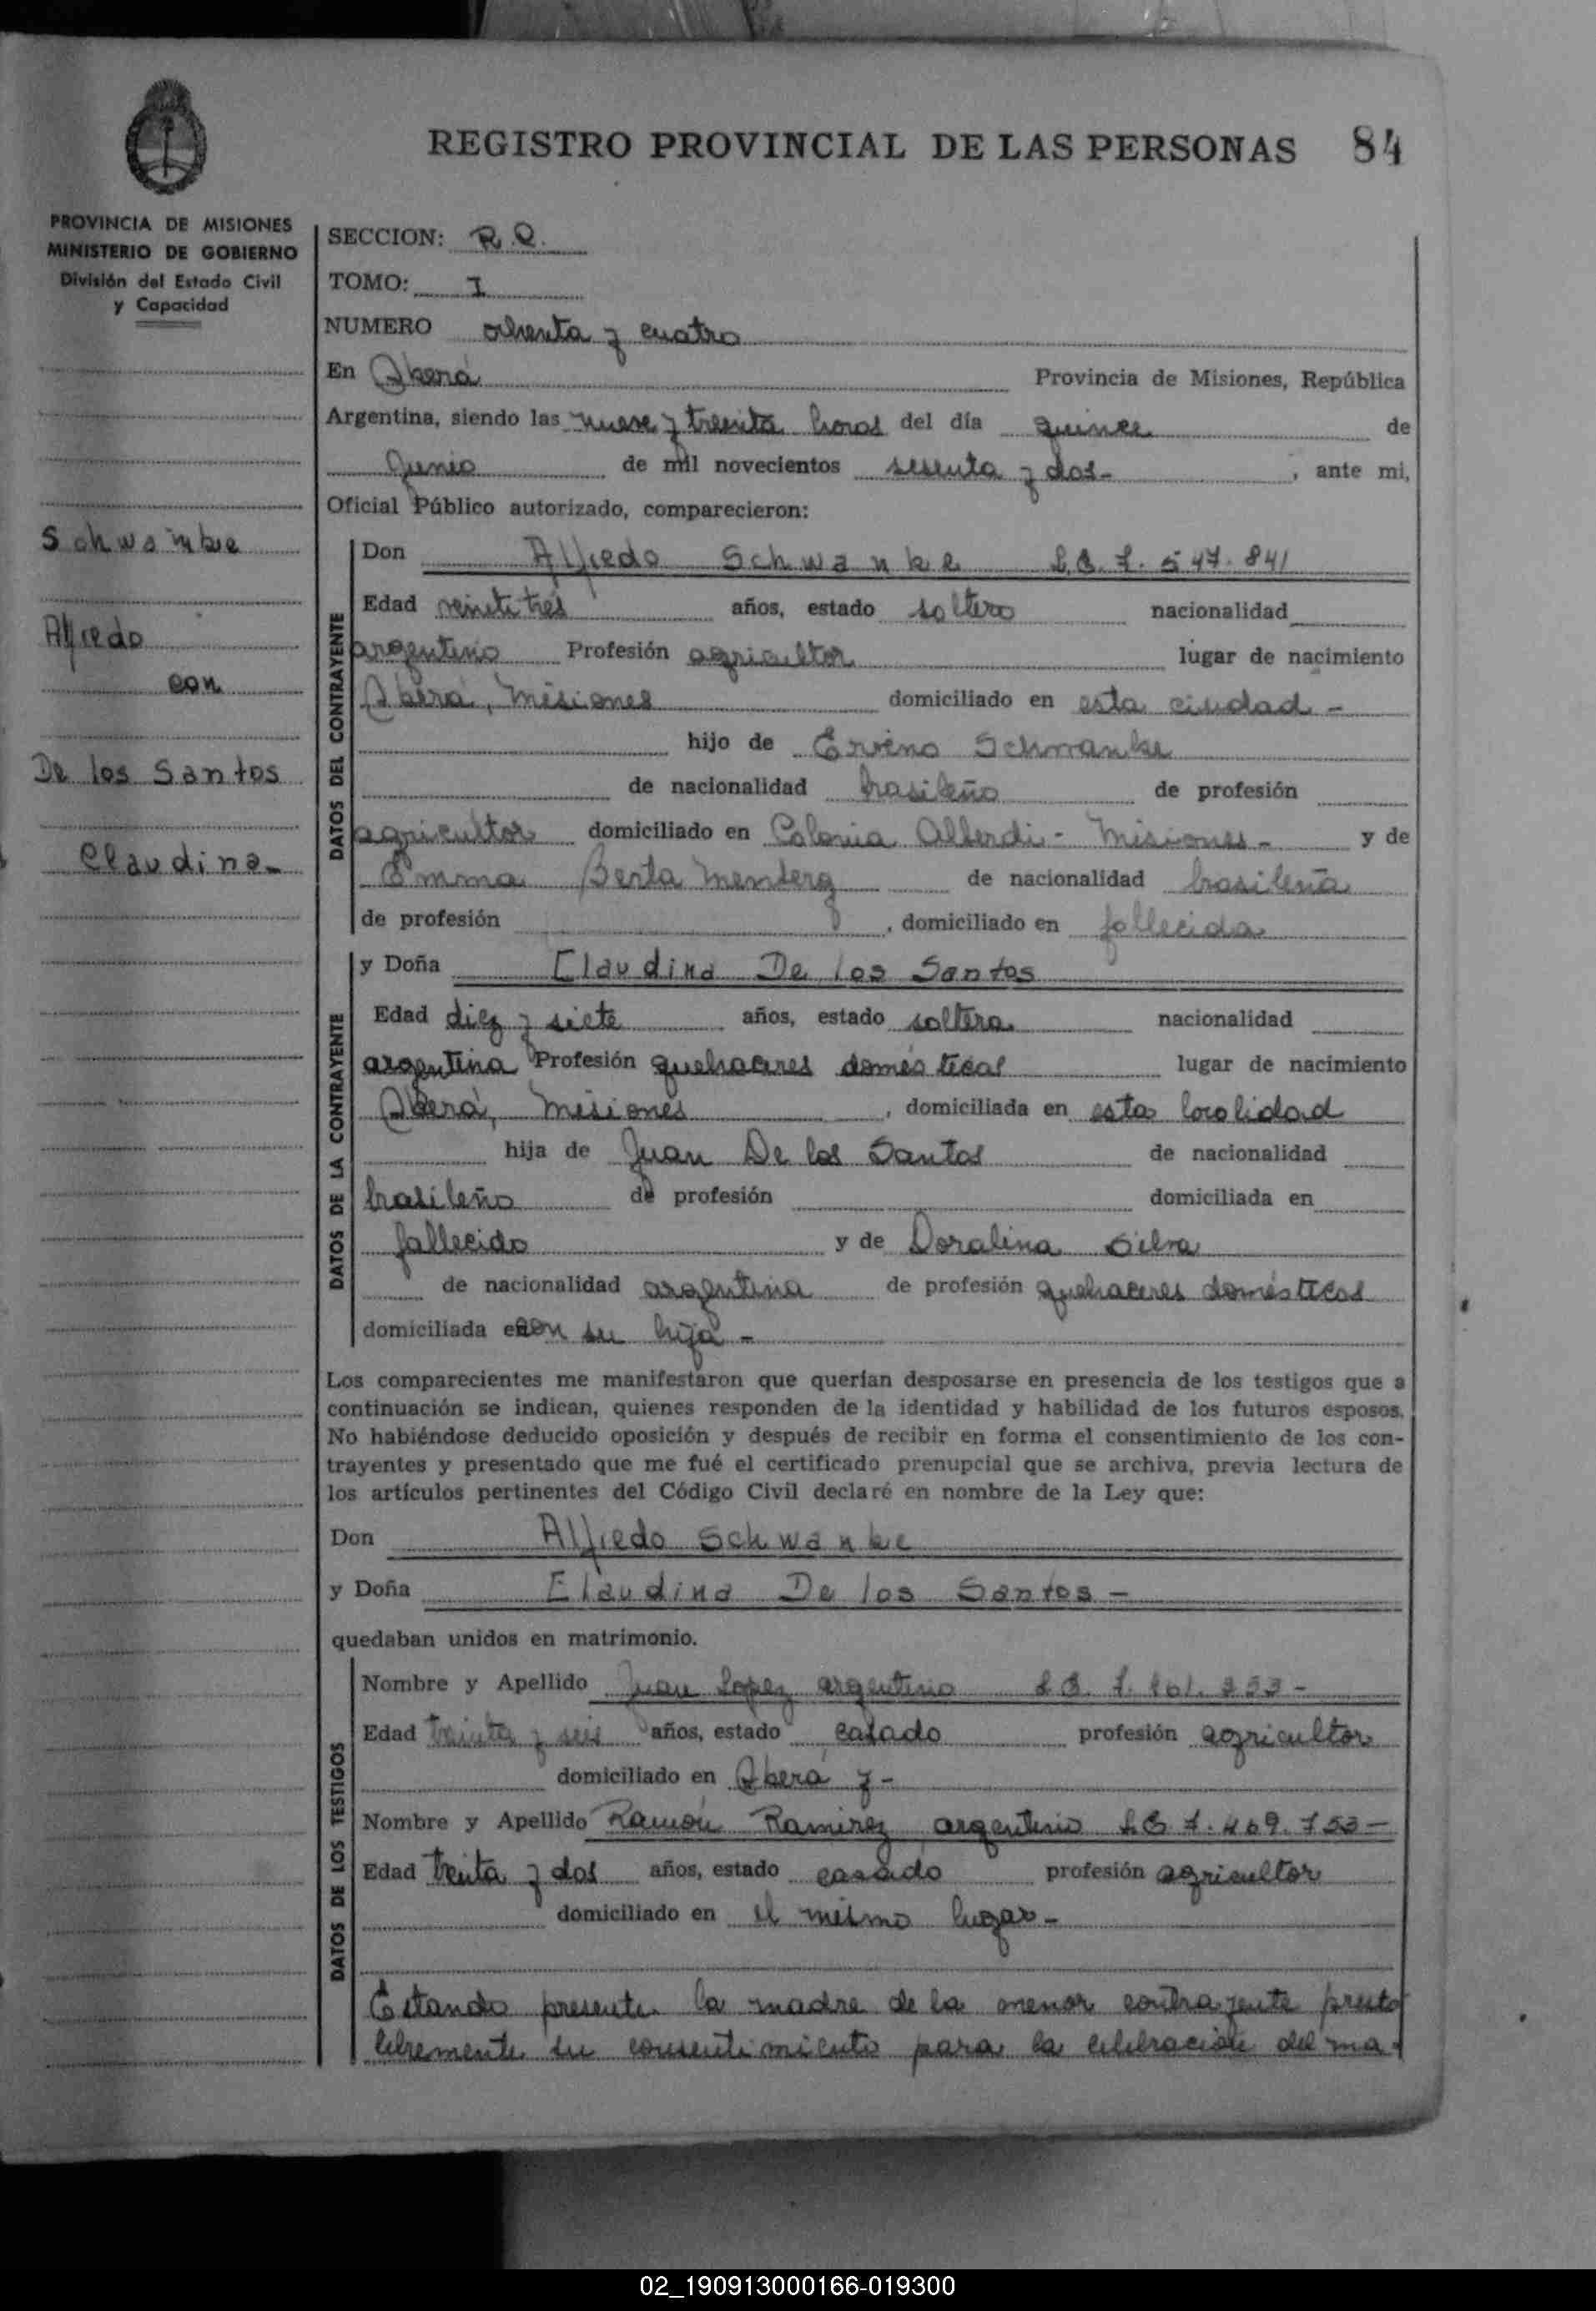 REGISTRO PROVINCIAL DE LAS PERSONAS 84
PROVINCIA DE MISIONES
MINISTERIO DE GOBIERNO
División del Estado Civil
y Capacidad
Schwanke
Alfredo
con
De los Santos
Claudina-
SECCION: R.Q.
TOMO: I
NUMERO ochenta y cuatro
En Oberá Provincia de Misiones, República
Argentina, siendo las nueve y treinta horas del día quince de
Junio de mil novecientos sesenta y dos- , ante mi,
Oficial Público autorizado, comparecieron:
DATOS DEL CONTRAYENTE
Don Alfredo Schwanke 7.547.841
Edad veintitrés años, estado soltero nacionalidad
argentino Profesión agricultor lugar de nacimiento
Oberá, Misiones domiciliado en esta ciudad -
hijo de Ervino Schwanke
de nacionalidad brasileño de profesión
agricultor domiciliado en Colonia Alberdi - Misiones - y de
Emma Berta de nacionalidad brasileña
de profesión , domiciliado en fallecida
DATOS DE LA CONTRAYENTE
y Doña Claudina De los Santos
Edad diez y siete años, estado soltera nacionalidad
argentina Profesión quehaceres domésticos lugar de nacimiento
Oberá, Misiones , domiciliada en esta localidad
hija de Juan De los Santos de nacionalidad
brasileño de profesión domiciliada en
fallecido y de Doralina Silva
de nacionalidad argentina de profesión quehaceres domésticos
domiciliada en con su hija -
Los comparecientes me manifestaron que querían desposarse en presencia de los testigos que a
continuación se indican, quienes responden de la identidad y habilidad de los futuros esposos.
No habiéndose deducido oposición y después de recibir en forma el consentimiento de los con-
trayentes y presentado que me fué el certificado prenupcial que se archiva, previa lectura de
los artículos pertinentes del Código Civil declaré en nombre de la Ley que:
Don Alfredo Schwanke
y Doña Claudina De los Santos -
quedaban unidos en matrimonio.
DATOS DE LOS TESTIGOS
Nombre y Apellido Juan Lopez argentino
Edad treinta y seis años, estado casado profesión agricultor
domiciliado en Oberá y -
Nombre y Apellido Ramón Ramirez argentino 7.469.753 -
Edad treita y dos años, estado casado profesión agricultor
domiciliado en el mismo lugar -
Estando presente la madre de la menor contrayente presta
libremente su consentimiento para la celebración del ma-
02_190913000166-019300